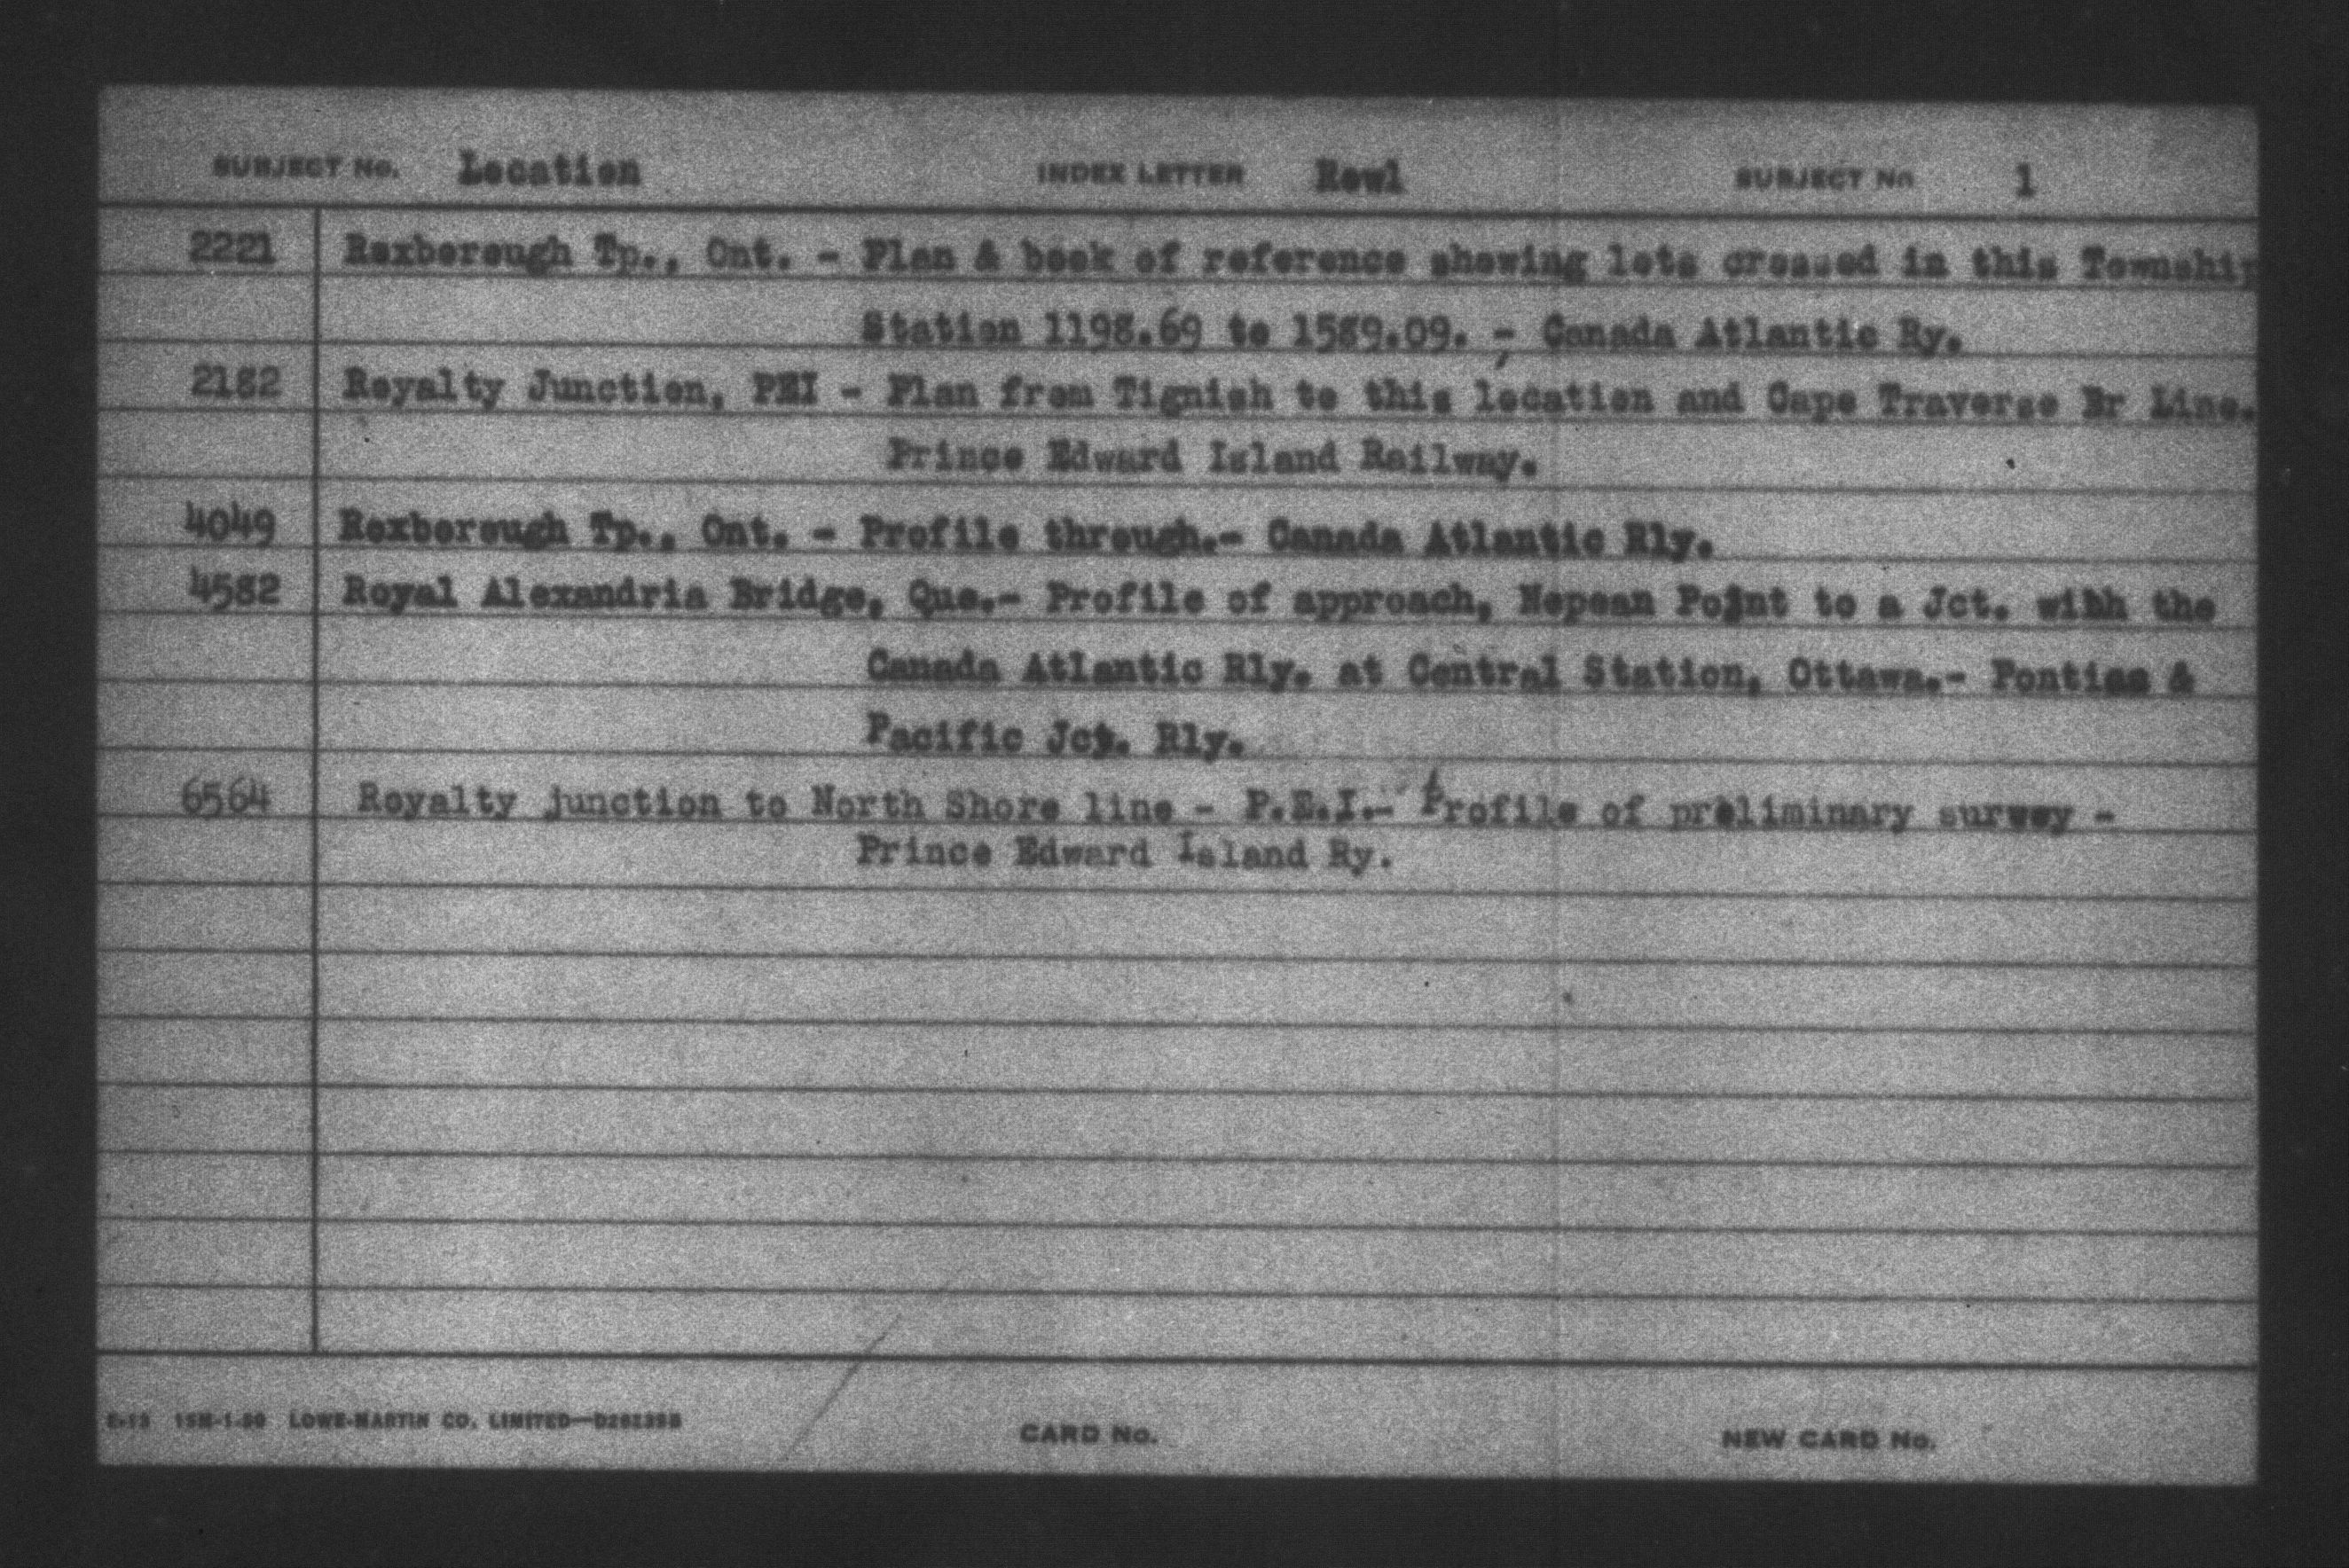 SUBJECT No. Location INDEX LETTER Rowl SUBJECT No 1
2221 Roxborough Tp., Ont. - Plan & book of reference showing lots crossed in this Township
Station 1198.69 to 1589.09. - Canada Atlantic Ry.
2182 Royalty Junction, PEI - Plan from Tignish to this location and Cape Traverse Br Line.
Prince Edward Island Railway.
4049 Roxborough Tp., Ont. - Profile through.- Canada Atlantic Rly.
4582 Royal Alexandria Bridge, Que.- Profile of approach, Nepean Point to a Jct. wihh the
Canada Atlantic Rly. at Central Station, Ottawa.- Pontiac &
Pacific Jct. Rly.
6564 Royalty junction to North Shore line - P.E.I.- Profile of preliminary survey -
Prince Edward Island Ry.
LOWE-MARTIN CO. LIMITED
CARD No.
NEW CARD No.